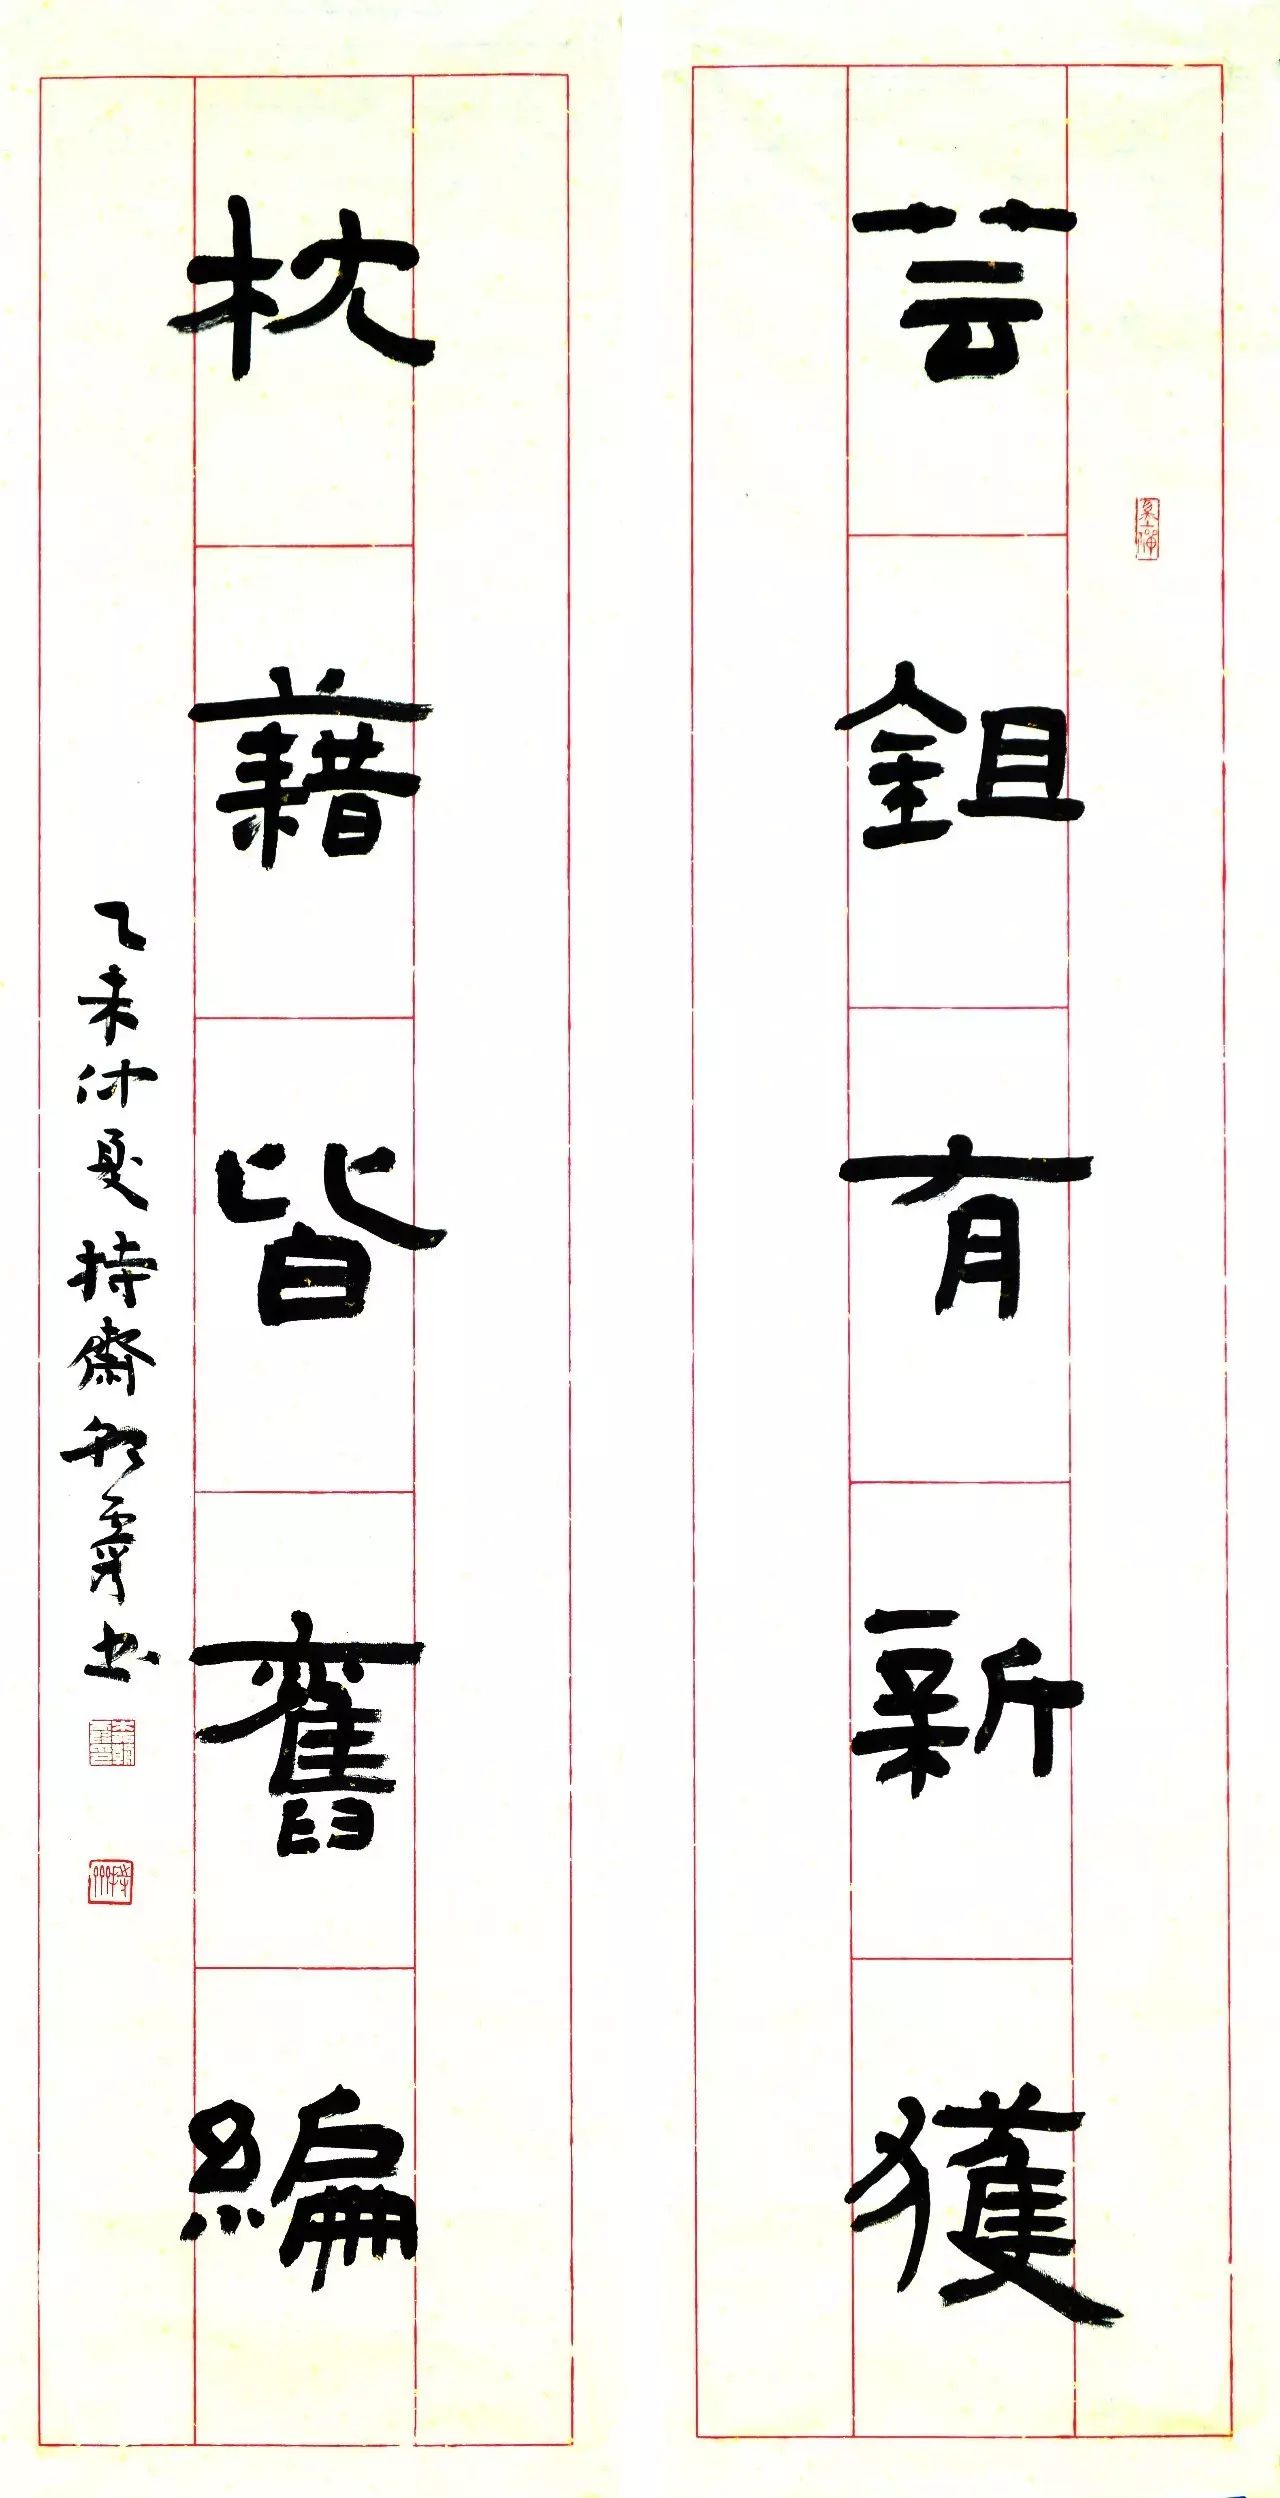 芸鉏有新獲
枕藉皆舊編
乙未仲夏持齋朝霽書